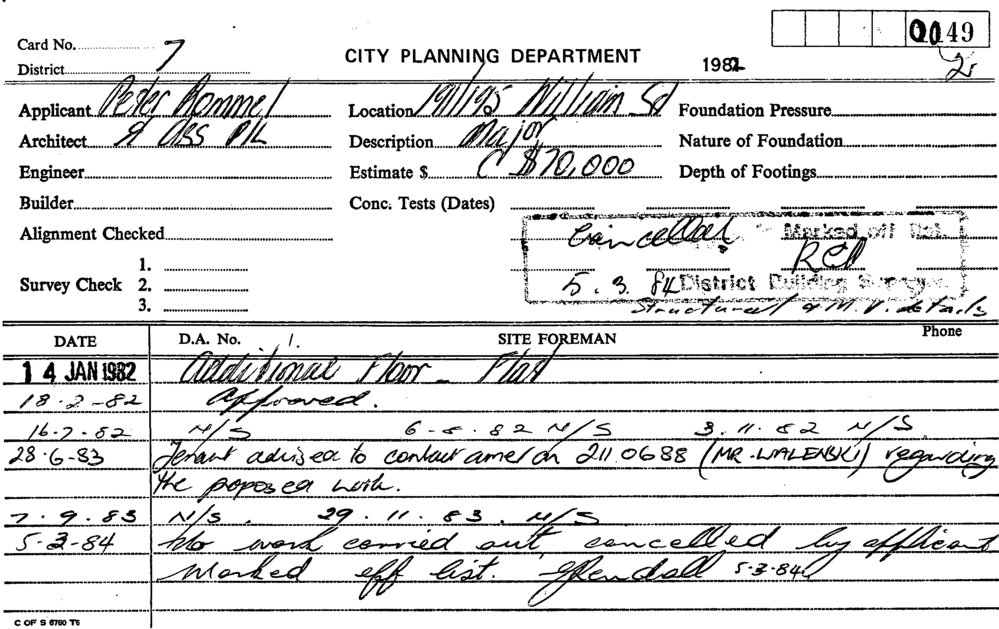 Card No. 7
0049
District
CITY PLANNING DEPARTMENT
1982
2
Applicant Peter Rommel
Location 191/195 William St
Foundation Pressure
Architect & Ass P/L
Description Major
Nature of Foundation
Engineer
Estimate $ C $70,000
Depth of Footings
Builder
Conc. Tests (Dates)
Alignment Checked
Cancelled Marked off
Survey Check 1.
2.
3.
5.3.84 District Building Surveyor
Structural & M.V. details
DATE
D.A. No.
SITE FOREMAN
Phone
14 JAN 1982 Additional Floor - Flat
18-2-82 Approved.
16.7.82 N/S 6-8.82 N/S 3.11.82 N/S
28.6-83 Tenant advised to contact on 211.0688 (MR. WALENSKI) regarding
the poposed work.
7.9.83 N/S. 29.11.83. N/S
5-3-84 No work carried out, cancelled by applicant
Marked off list. 5-3-84
C OF S 6760 T6